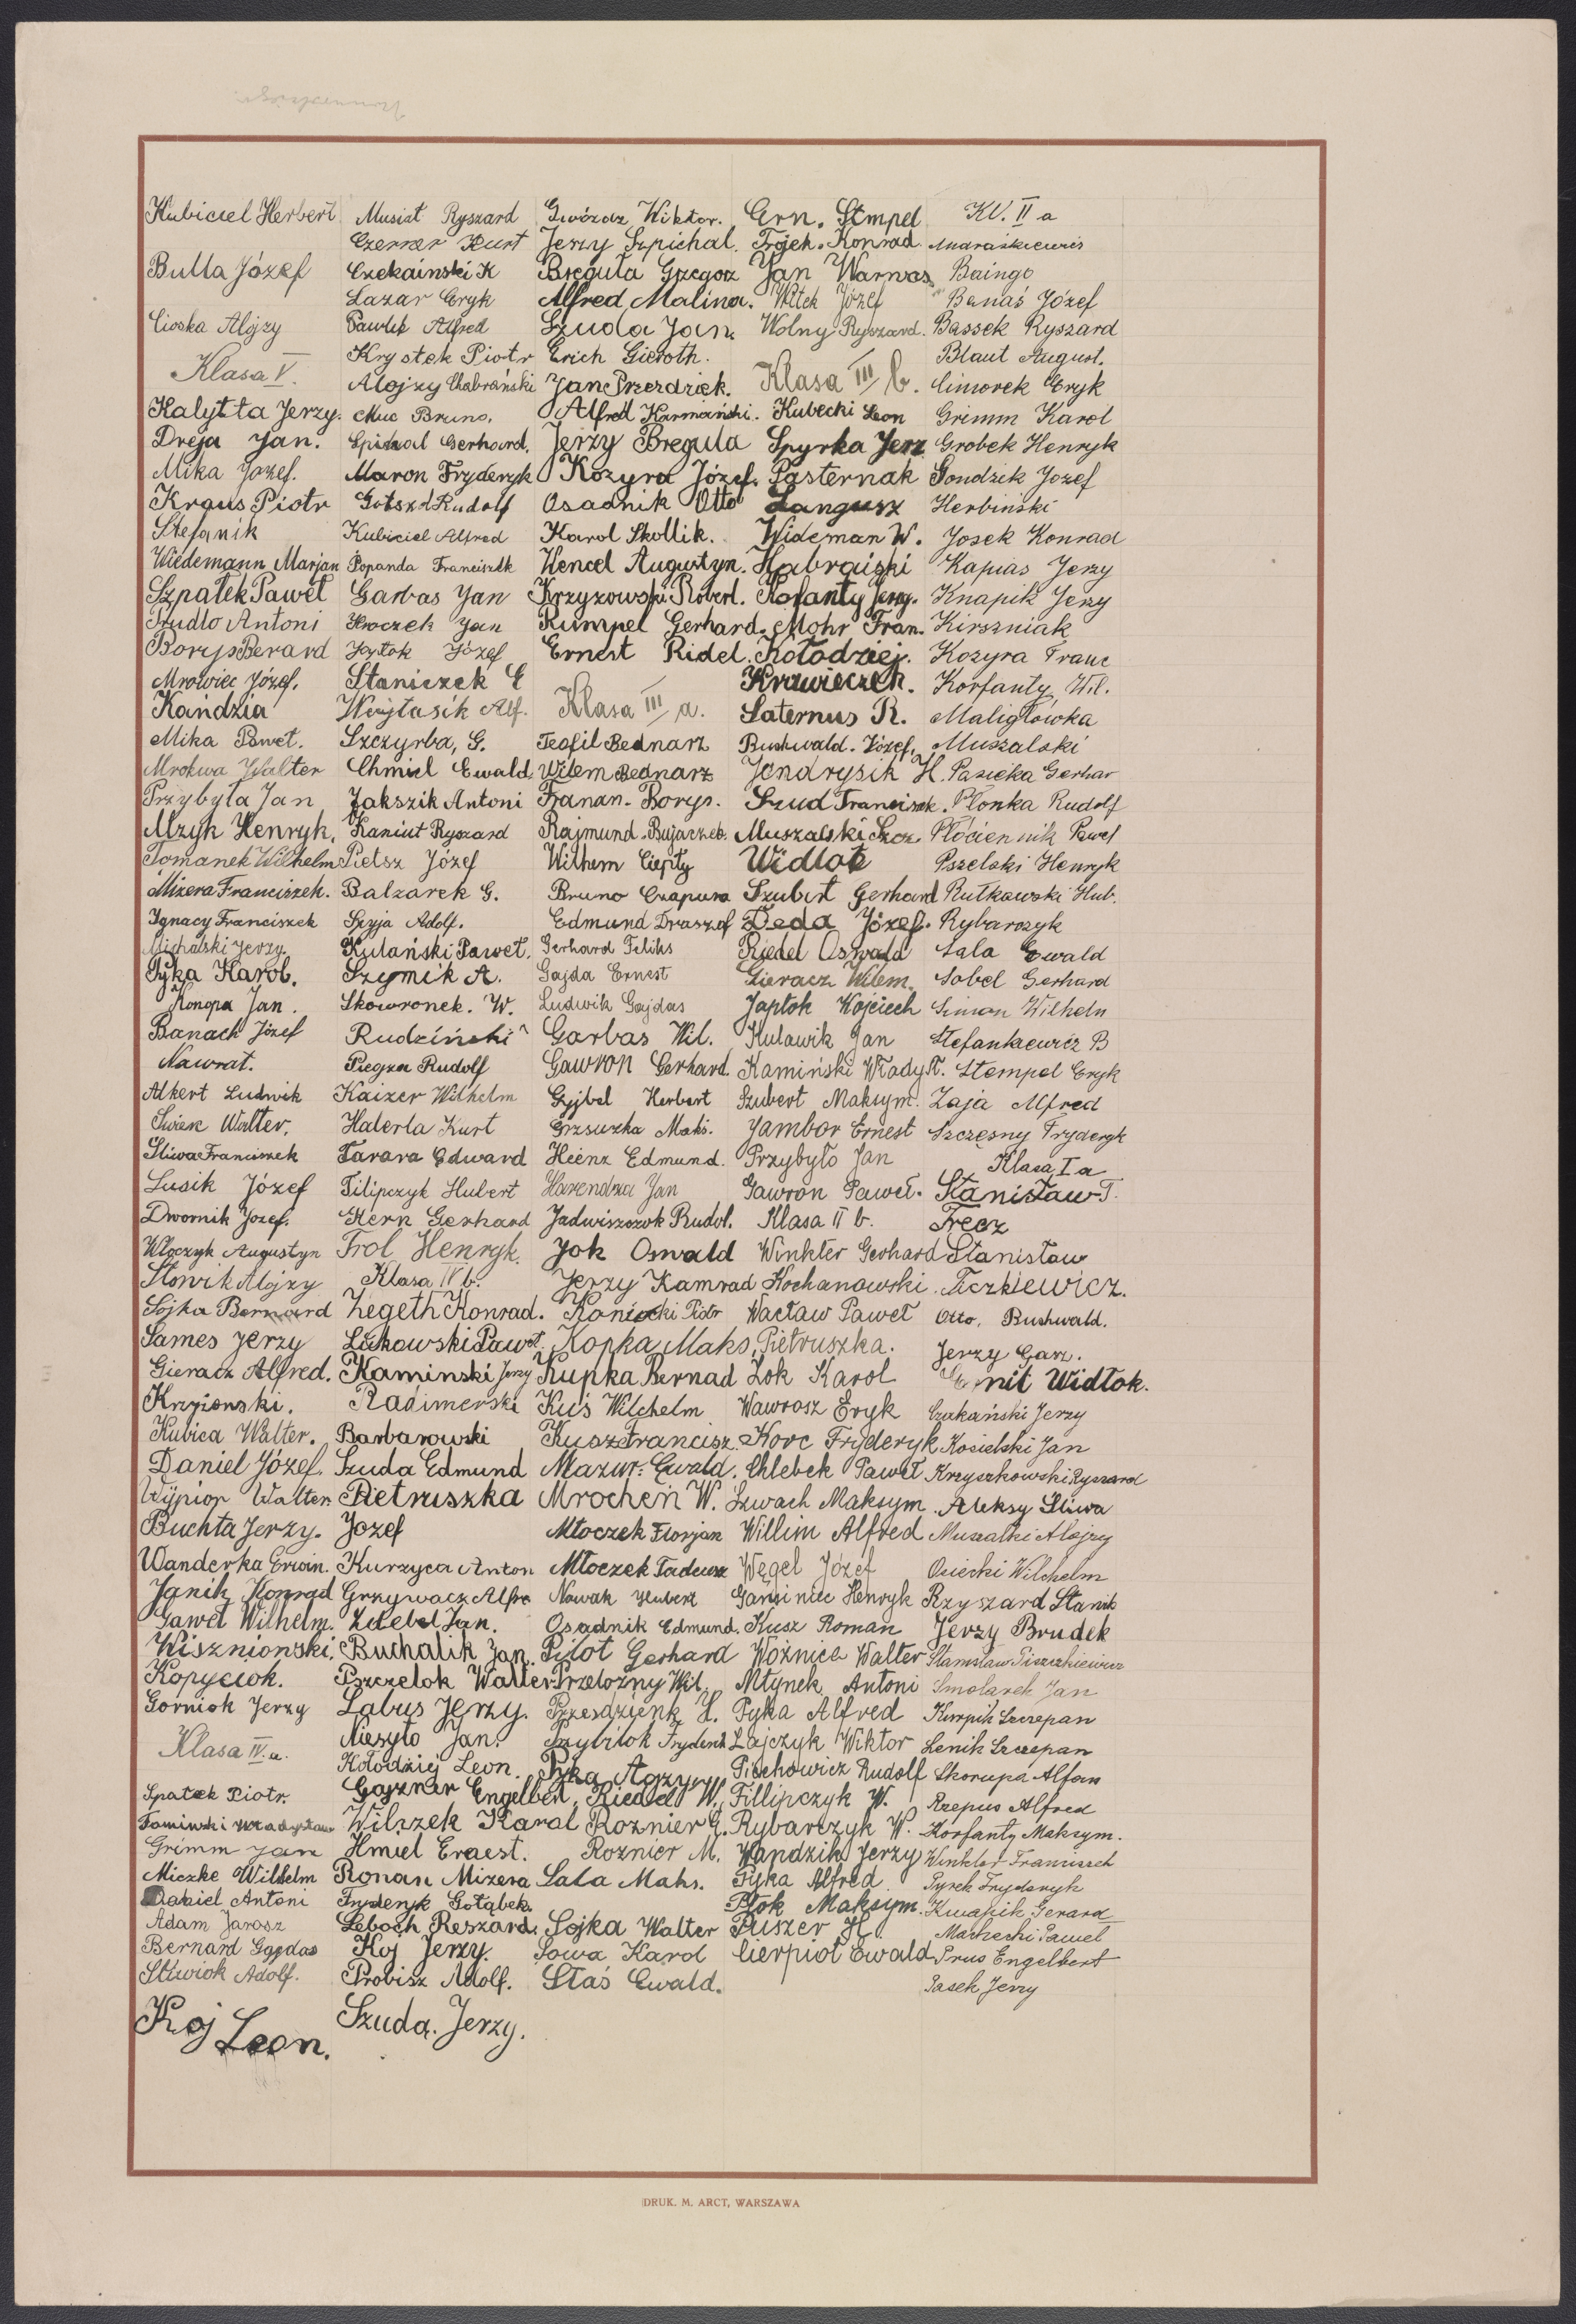 Kubiciel Herbert
Bulla Józef
Cioska Alojzy
Klasa V.
Kalytta Jerzy.
Dreja Jan.
Mika Józef.
Kraus Piotr
Stefanik
Wiedemann Marjan
Szpałek Paweł
Pudło Antoni
Borys Berard
Mrowiec Józef.
Kandzia
Mika Paweł.
Mrokwa Walter
Przybyła Jan
Mzyk Henryk,
Tomanek Wilhelm
Mizera Franciszek.
Ignacy Franciszek
Michalski Jerzy
Pyka Karol.
Konopa Jan.
Banach Józef
Nawrat.
Alkert Ludwik
Siwek Walter.
Śliwa Franciszek
Lusik Józef
Dwornik Józef.
Włoczyk Augustyn
Słowik Alojzy
Sojka Bernard
Sames Jerzy
Gieracz Alfred.
Krzionski.
Kubica Walter.
Daniel Józef.
Wypior Walter.
Buchta Jerzy.
Wanderka Erwin.
Janik Konrad
Gaweł Wilhelm.
Wisznionski.
Kopyciok.
Gorniok Jerzy
Klasa IV a.
Spałek Piotr.
Grimm Jan
Miczke Wilhelm
Daniel Antoni
Adam Jarosz
Bernard Gajdas
Śliwiok Adolf.
Koj Leon.
Musiał Ryszard
Czerner Kurt
Czekainski K
Lazar Eryk
Pawlik Alfred
Krystek Piotr
Alojzy Chabrański
Muc Bruno.
Gerhard.
Maron Fryderyk
Rudolf
Kubiciel Alfred
Popanda Franciszek
Garbas Jan
Kroczek Jan
Józef
Staniczek E
Wojtasik Alf.
Szczyrba, G.
Chmiel Ewald
Jakszik Antoni
Kaniut Ryszard
Pietsz Józef
Balzarek G.
Szyja Adolf.
Kulański Paweł.
Szymik A.
Skowronek. W.
Rudziński
Piegza Rudolf
Kaizer Wilhelm
Haterla Kurt
Tarara Edward
Filipczyk Hubert
Kern Gerhard
Frol Henryk.
Klasa IV b.
Zegeth Konrad.
Lukowski Paweł.
Kaminski Jerzy
Radimerski
Barbarowski
Szuda Edmund
Pietruszka
Jozef
Kurzyca Anton
Grzywacz Alfre
Zdebel Jan.
Buchalik Jan.
Pszczelok Walter
Labus Jerzy.
Niesyto Jan.
Kołodziej Leon.
Gajzner Engelbert,
Wilszek Karol
Hmiel Ernest.
Roman Mizera
Fryderyk Gołąbek.
Leboch Reszard.
Koj Jerzy.
Probisz Adolf.
Szuda. Jerzy.
Gwózdz Wiktor.
Jerzy Szpichal.
Breguła Grzegorz
Alfred Malina.
Szuda Jan.
Erich Gieroth.
Jan Przezdziek.
Alfred Karmański.
Jerzy Bregula
Kozyra Józef.
Osadnik Otto
Karol Skollik.
Hencel Augustyn.
Krzyzowski Robert.
Rumpel Gerhard.
Ernest Ridel.
Klasa III a.
Teofil Bednarz
Wilem Bednarz
Franan. Borys.
Rajmund Bujaczek.
Wilhem Ciepły
Bruno Czapura
Edmund Draszof
Gerhard Feliks
Gajda Ernest
Ludwik Gajdas
Garbas Wil.
Gawron Gerhard.
Gyjbel Herbert
Grzsuzka Maks.
Heinz Edmund.
Harendza Jan
Jadwiszczok Rudol.
Jok Oswald
Jerzy Kamrad
Koniecki Piotr
Kopka Maks.
Kupka Bernad
Kuś Wilchelm
Kusz Francisz.
Mazur. Ewald.
Mrocheń W.
Młoczek Florjan
Młoczek Tadeusz
Nowak Hubert
Osadnik Edmund.
Pilot Gerhard
Przelożny Wil.
Przezdzienk H.
Przybilok Fryderik
Pyka Alojzy
Riedel W.
Roznier G.
Roznier M.
Sala Maks.
Sojka Walter
Sowa Karol
Staś Ewald.
Ern. Stmpel
Trojek. Konrad.
Jan Warwas.
Witek Józef
Wolny Ryszard.
Klasa III b.
Kubecki Leon
Spyrka Jerz
Pasternak
Langusz
Wideman W.
Habraiski
Kofanty Jerzy.
Mohr Fran.
Kołodziej.
Krawieczek.
Saternus R.
Buchwald. Józef.
Jendrysik H.
Szud Francisek.
Muszalski Szcz.
Widlok
Szubert Gerhard
Deda Józef.
Riedel Oswald
Gieracz Wilem.
Japtok Wojciech
Kulawik Jan
Kamiński Włady.
Szubert Maksym.
Jambor Ernest
Przybyło Jan
Gawron Paweł.
Klasa II b.
Winkler Gerhard
Kochanowski.
Wacław Paweł
Pietruszka.
Żok Karol
Wawrosz Eryk
Korc Fryderyk
Chlebek Paweł
Szwach Maksym.
Willim Alfred
Węgel Józef
Gansiniec Henryk
Kusz Roman
Woźnica Walter
Młynek Antoni
Pyka Alfred
Zajczyk Wiktor
Piechowicz Rudolf
Fillipczyk W.
Rybarczyk W.
Wandzik Jerzy
Pyka Alfred
Ptok Maksym.
Puszer H
Cierpioł Ewald
Kl. II a
Andraśkiewicz
Baingo
Banaś Józef
Bassek Ryszard
Blaut August.
Cimorek Eryk
Grimm Karol
Grobek Henryk
Gondzik Józef
Herbiński
Josek Konrad
Kapias Jerzy
Knapik Jerzy
Kirszniak
Kozyra Franc
Korfanty Wil.
Maligłówka
Muszalski
Pasieka Gerhar
Płonka Rudolf
Płóciennik Paweł
Pszelski Henryk
Rutkowski Hub.
Rybarczyk
Sala Ewald
Sobel Gerhard
Simon Wilheln
Stefankiewicz B
Stempel Eryk
Zaja Alfred
Szczęsny Fryderyk
Klasa I a
Stanisław T.
Trecz
Stanisław
Ticzkiewicz.
Otto. Buchwald.
Jerzy Garz.
Widłok.
Czakański Jerzy
Kosielski Jan
Krzyszkowski Ryszard
Aleksy Śliwa
Muzalki Alojzy
Osiecki Wilchelm
Rzyszard Stanik
Jerzy Brudek
Stanisław Tiszczkiewicz
Smolarek Jan
Kurpik Szczepan
Lenik Szczepan
Skorupa Alfon
Rzepus Alfred
Korfanty Maksym.
Winkler Franciszek
Pyrek Fryderyk
Kwapik Gerard
Machecki Paweł
Prus Engelbert
Pasek Jerzy
DRUK. M. ARCT, WARSZAWA